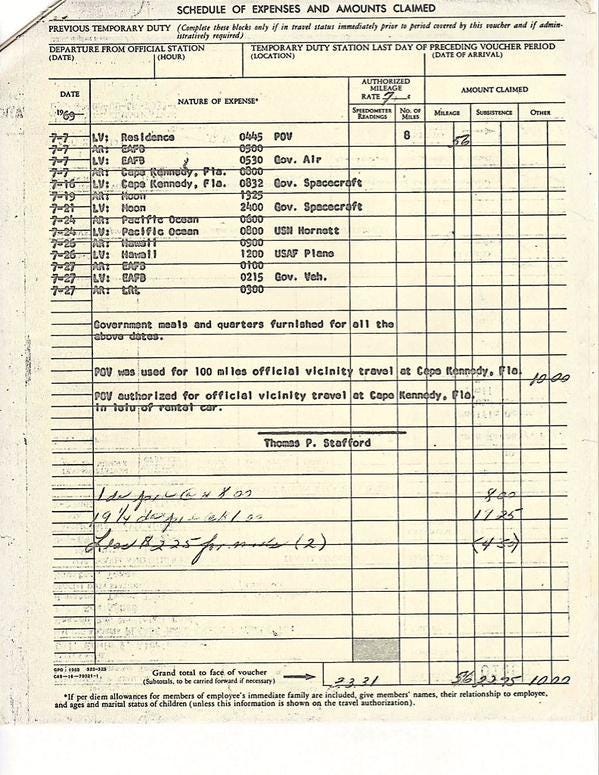 SCHEDULE OF EXPENSES AND AMOUNTS CLAIMED
PREVIOUS TEMPORARY DUTY (Complete these blocks only if in travel status immediately prior to period covered by this voucher and if admin-
istratively required)
DEPARTURE FROM OFFICIAL STATION TEMPORARY DUTY STATION LAST DAY OF PRECEDING VOUCHER PERIOD
(DATE) (HOUR) (LOCATION) (DATE OF ARRIVAL)
DATE NATURE OF EXPENSE* AUTHORIZED MILEAGE RATE 7 ¢ AMOUNT CLAIMED
1969 SPEEDOMETER READINGS NO. OF MILES MILEAGE SUBSISTENCE OTHER
7-7 LV: Residence 0445 POV 8 56
7-7 AR: EAFB 0500
7-7 LV: EAFB 0530 Gov. Air
7-7 AR: Cape Kennedy, Fla. 0800
7-16 LV: Cape Kennedy, Fla. 0832 Gov. Spacecraft
7-19 AR: Moon 1325
7-21 LV: Moon 2400 Gov. Spacecraft
7-24 AR: Pacific Ocean 0600
7-24 LV: Pacific Ocean 0800 USN Hornett
7-26 AR: Hawaii 0900
7-26 LV: Hawaii 1200 USAF Plane
7-27 AR: EAFB 0100
7-27 LV: EAFB 0215 Gov. Veh.
7-27 AR: LRL 0300
Government meals and quarters furnished for all the
above dates.
POV was used for 100 miles official vicinity travel at Cape Kennedy, Fla. 10.00
POV authorized for official vicinity travel at Cape Kennedy, Fla.
in leiu of rental car.
Thomas P. Stafford
1 day 8 00 8 00
19 1/4 1 00 19 25
Less $2.25 for meals (2) (4 50)
GPO : 1968
Grand total to face of voucher
(Subtotals, to be carried forward if necessary) 33.31 56 22 75 10 00
*If per diem allowances for members of employee's immediate family are included, give members' names, their relationship to employee,
and ages and marital status of children (unless this information is shown on the travel authorization).